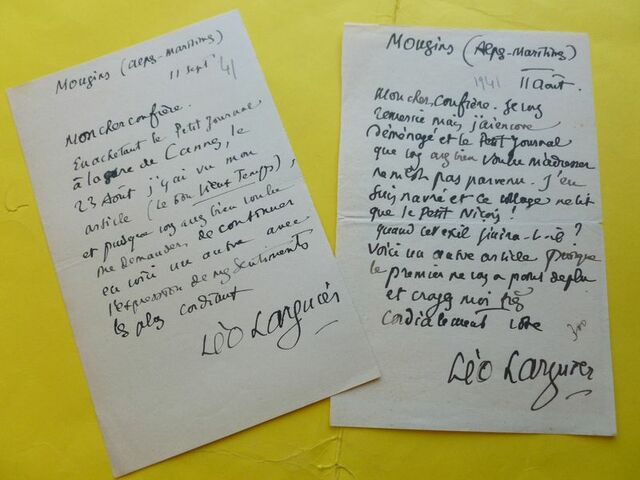 Mougins (Alpes-Maritimes)
11 Sept 41
Mon cher confrère.
En achetant le Petit Journal
à la gare de Cannes, le
23 Août j'y ai vu mon
article (Le bon Vieux Temps),
et puisque vous avez bien voulu
me demander de continuer
en voici un autre avec
l'expression de mes sentiments
les plus cordiaux
Léo Larguier
Mougins (Alpes-Maritimes)
1941 11 Août.
Mon cher confrère. Je vous
remercie mais j'ai encore
Déménagé et le Petit Journal
que vous avez bien voulu m'adresser
ne m'est pas parvenu. J'en
suis navré et ce village ne lit
que le Petit Niçois !
quand cet exil finira-t-il ?
Voici un autre article puisque
le premier ne vous a point déplu
et croyez moi très
cordialement votre
Léo Larguier